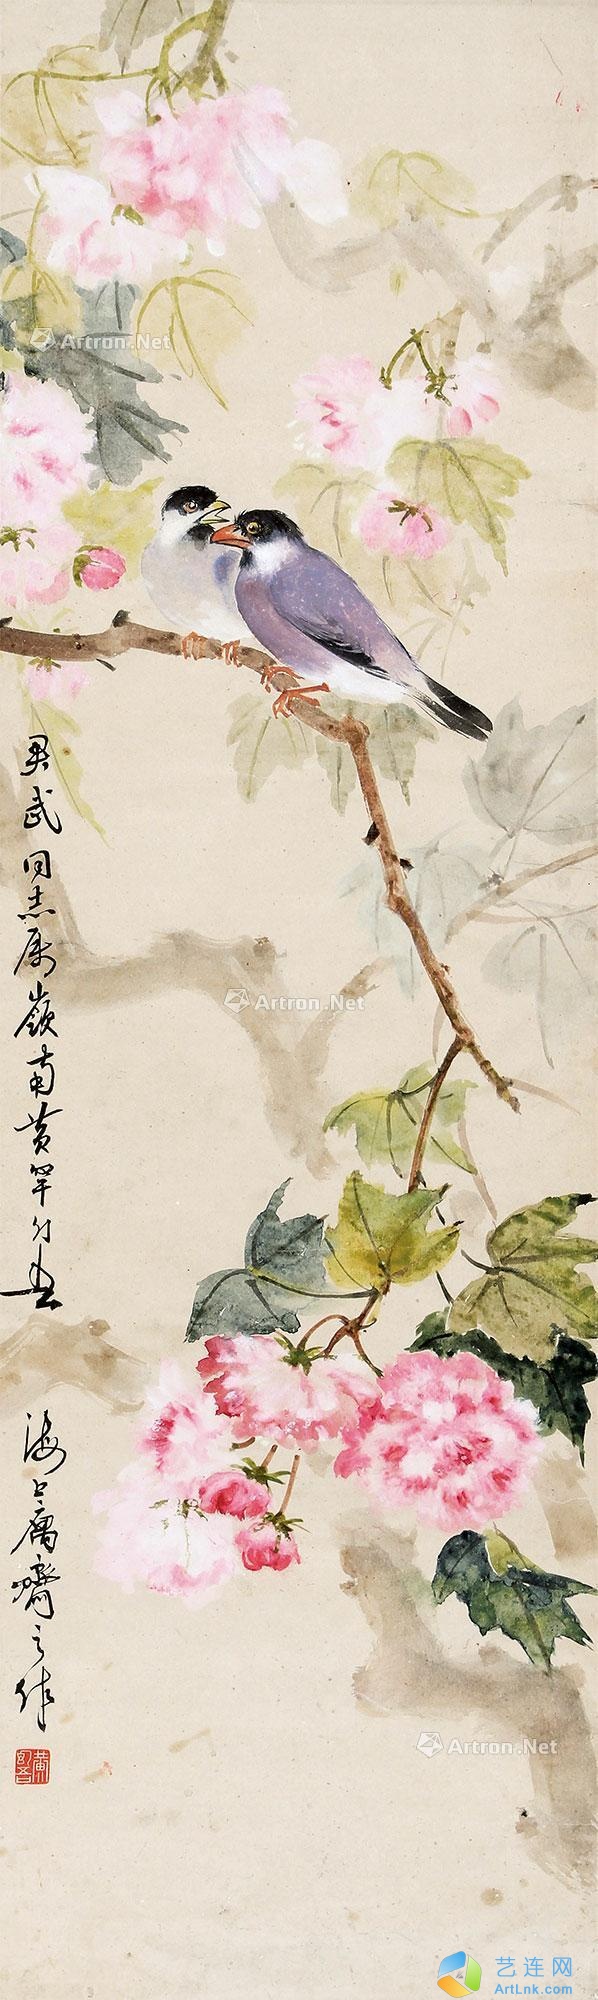 Artron.Net
武同志属嶺南黄罕画
Artron.Net
海上庸齋之作
黄幻吾
Artron.Net
艺连网
ArtLnk.com